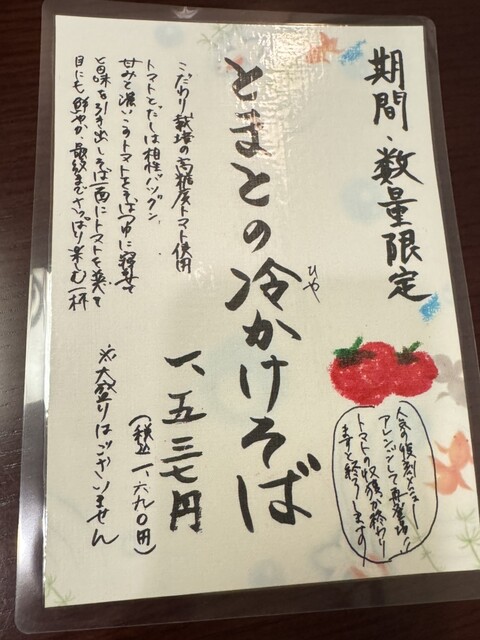 期間・数量限定
人気の復刻メニュー!
アレンジして再登場!!
トマトの収穫が終わり
ますと終了します
とまとの冷かけそば
ひや
一、五三七円
(税込一、六九〇円)
こだわり栽培の高糖度トマト使用
トマトとだしは相性バツグン
甘みと濃いうまトマトをそばつゆに合わせて
旨味を引き出しそば一面にトマトを
目にも鮮やか、最後までさっぱり楽しむ一杯
※大盛りはございません